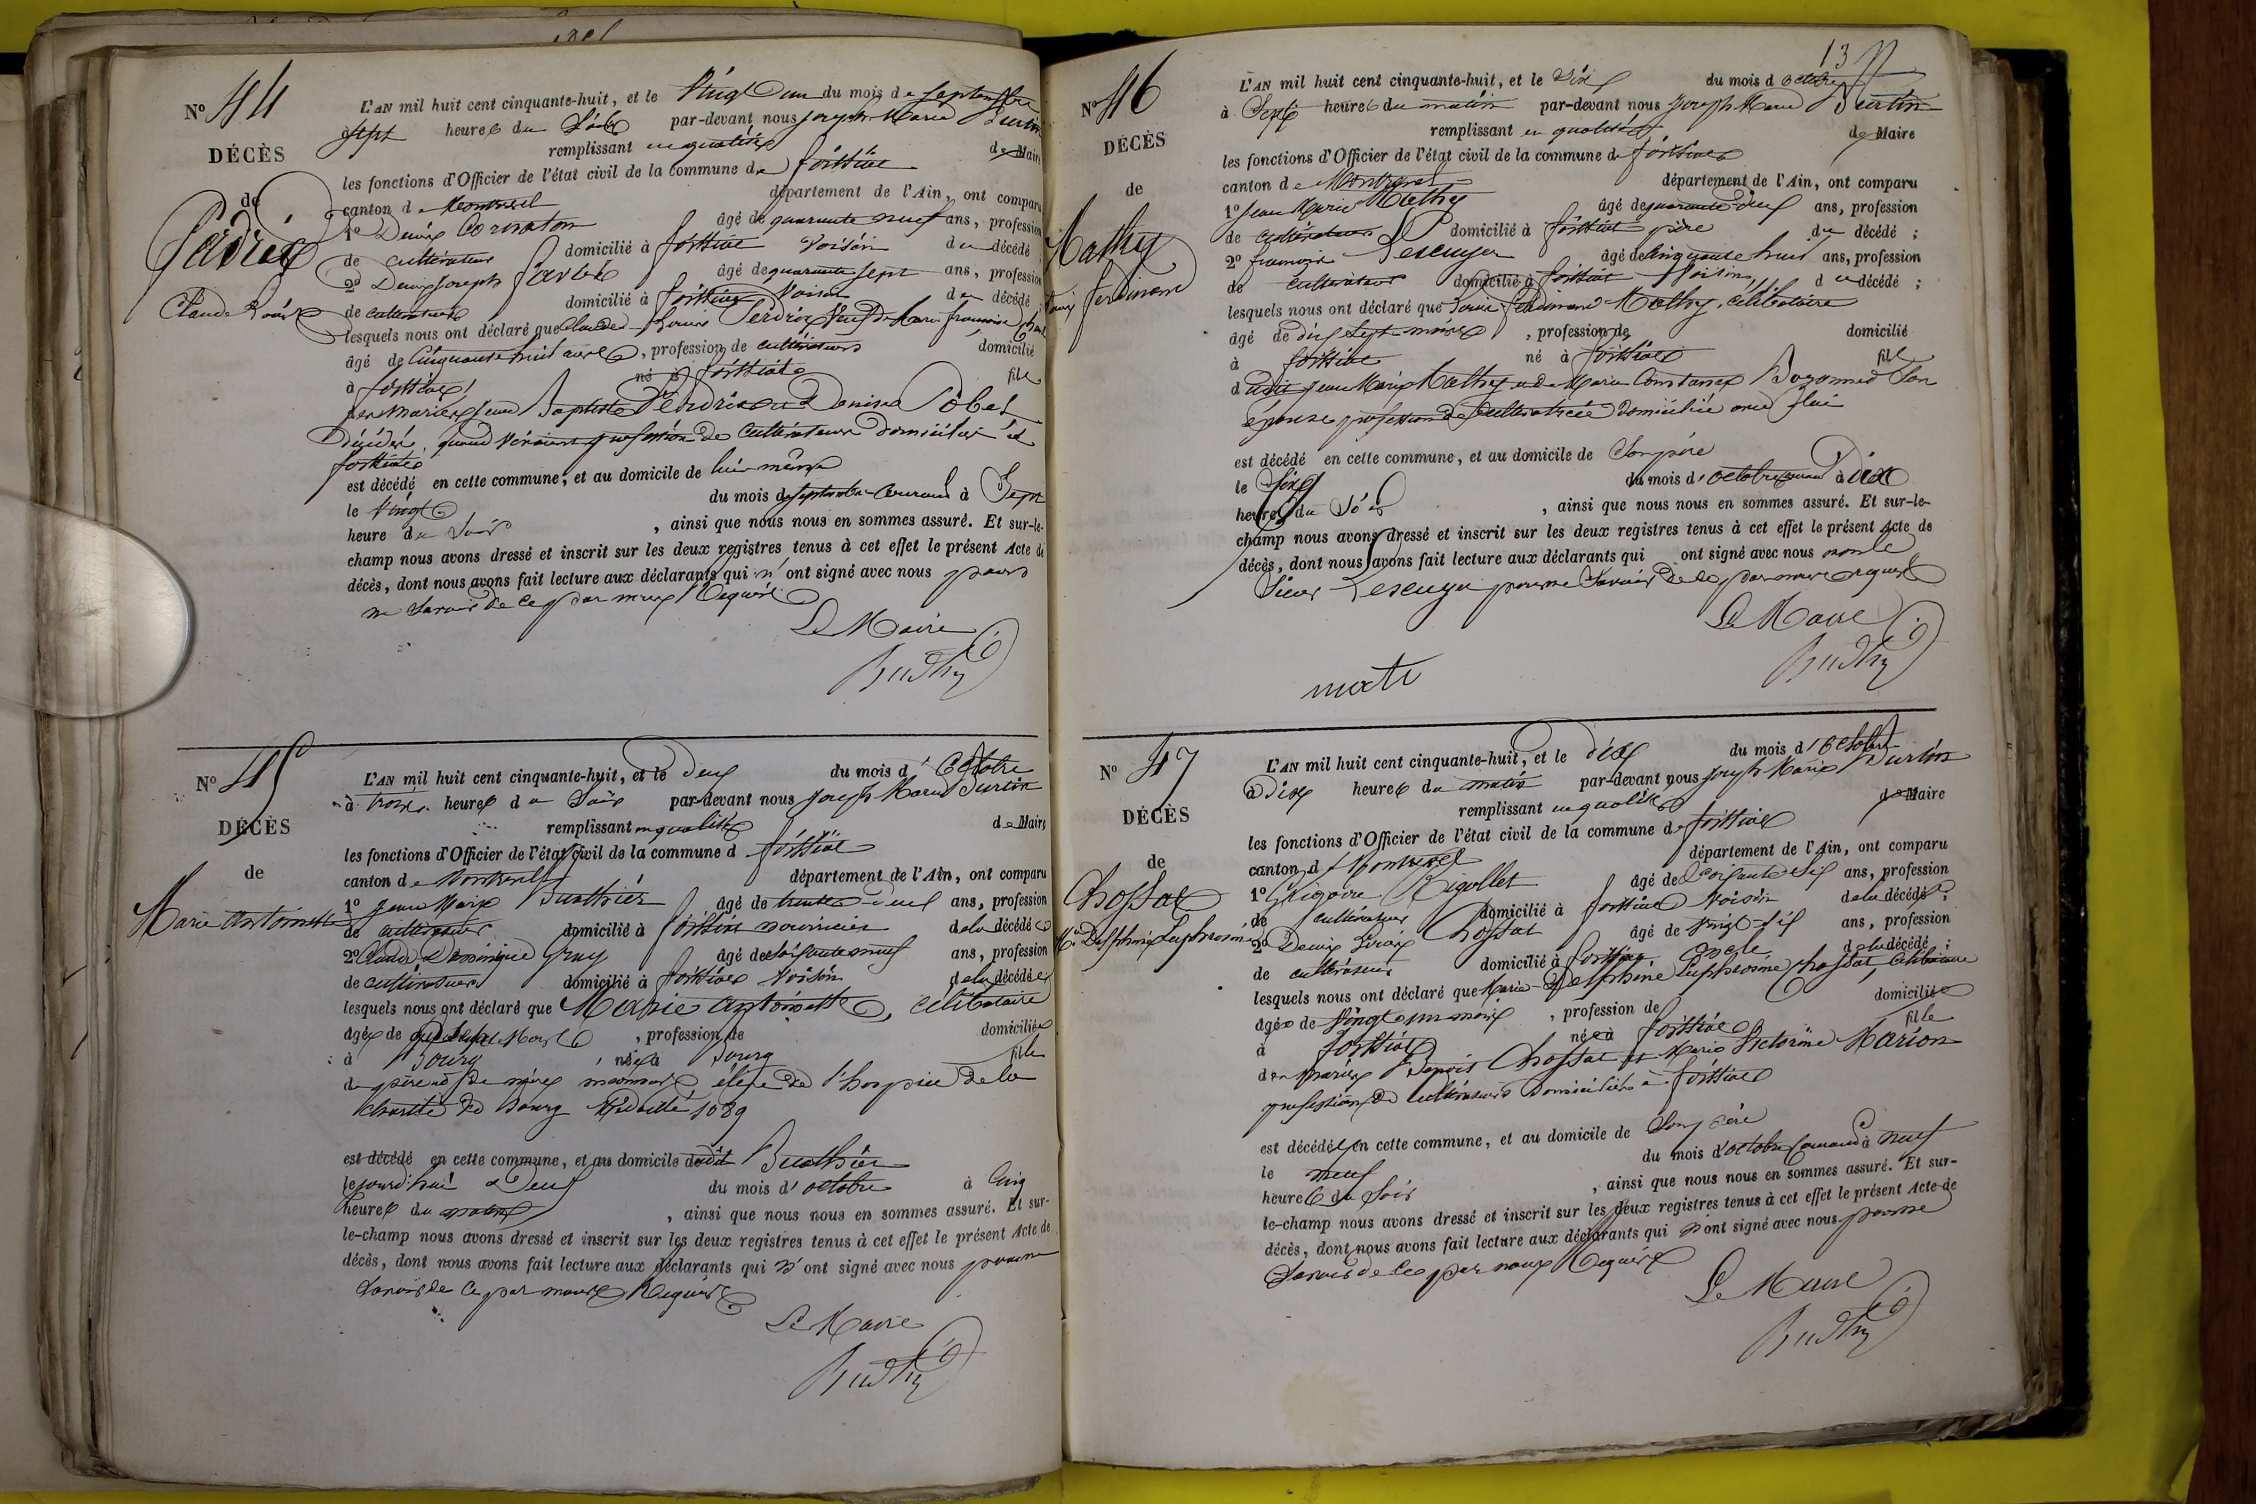 No 44
DÉCÈS
de
Perdrix
Claude Louis
L'AN mil huit cent cinquante-huit, et le Vingt un du mois de Septembre
à Sept heures du Soir par-devant nous Joseph Marie Burtin
remplissant en qualité de Maire
les fonctions d'Officier de l'état civil de la commune de foissiat
canton de Montrevel département de l'Ain, ont comparu
1º Denis Cormaton âgé de quarante neuf ans, profession
de cultivateur domicilié à foissiat Voisin du décédé
2º Denis Joseph âgé de quarante sept ans, profession
de cultivateur domicilié à foissiat Voisin du décédé
lesquels nous ont déclaré que Claude Louis Perdrix Veuf de Marie françoise
âgé de Cinquante huit ans, profession de cultivateur domicilié
à foissiat né à foissiat fils
des mariés Jean Baptiste Perdrix et Denise Pobel
Décédés, quand vivaient profession de cultivateurs domiciliés à
foissiat
est décédé en cette commune, et au domicile de lui même
le Vingt du mois de Septembre Courant à Sept
heure du Soir , ainsi que nous nous en sommes assuré. Et sur-le-
champ nous avons dressé et inscrit sur les deux registres tenus à cet effet le présent Acte de
décès, dont nous avons fait lecture aux déclarants qui n'ont signé avec nous pour
ne Savoir de ce par nous Requis
Le Maire
No 45
DÉCÈS
de
Marie Antoinette
L'AN mil huit cent cinquante-huit, et le deux du mois d'Octobre
à trois heures du Soir par-devant nous Joseph Marie Burtin
remplissant en qualité de Maire
les fonctions d'Officier de l'état civil de la commune d foissiat
canton de Montrevel département de l'Ain, ont comparu
1º Jean Marie Buathier âgé de trente deux ans, profession
de cultivateur domicilié à foissiat nourricier de la décédée
2º Claude Dominique Gray âgé de soixante neuf ans, profession
de cultivateur domicilié à foissiat Voisin de la décédée
lesquels nous ont déclaré que Marie Antoinette, célibataire
âgée de Mois , profession de domiciliée
à Bourg , née à Bourg fille
de père et de mère inconnus, élève de l'hospice de la
charité de Bourg 1089
est décédé en cette commune, et au domicile dudit Buathier
le jourd'hui deux du mois d'octobre à Cinq
heures du matin , ainsi que nous nous en sommes assuré. Et sur-
le-champ nous avons dressé et inscrit sur les deux registres tenus à cet effet le présent Acte de
décès, dont nous avons fait lecture aux déclarants qui n'ont signé avec nous pour ne
Savoir de Ce par nous Requis
Le Maire
13
No 46
DÉCÈS
de
Mathy
Louis ferdinand
L'AN mil huit cent cinquante-huit, et le Dix du mois d octobre
à Sept heures du matin par-devant nous Joseph Marie Burtin
remplissant en qualité de Maire
les fonctions d'Officier de l'état civil de la commune de foissiat
canton de Montrevel département de l'Ain, ont comparu
1º Jean Marie Mathy âgé de quarante deux ans, profession
de cultivateur domicilié à foissiat père du décédé ;
2º françois Lescuyer âgé de Cinquante huit ans, profession
de cultivateur domicilié à foissiat Voisin du décédé ;
lesquels nous ont déclaré que Louis ferdinand Mathy, célibataire
âgé de dix Sept mois , profession de domicilié
à foissiat né à foissiat fils
dudit Jean Marie Mathy et de Marie Constance Son
épouse profession de Cultivatrice domiciliée avec lui
est décédé en cette commune, et au domicile de Son père
le du mois d'octobre courant à Dix
heures du Soir , ainsi que nous nous en sommes assuré. Et sur-le-
champ nous avons dressé et inscrit sur les deux registres tenus à cet effet le présent Acte de
décès, dont nous avons fait lecture aux déclarants qui ont signé avec nous non le
Sieur Lescuyer pour ne Savoir de ce par nous requis
Le Maire
No 47
DÉCÈS
de
Chossat
Mie Delphine Euphrosine
L'AN mil huit cent cinquante-huit, et le dix du mois d'Octobre
à Dix heures du matin par-devant nous Joseph Marie Burtin
remplissant en qualité de Maire
les fonctions d'Officier de l'état civil de la commune de foissiat
canton d Montrevel département de l'Ain, ont comparu
1º Grégoire Rigollet âgé de Soixante Six ans, profession
de cultivateur domicilié à foissiat Voisin de la décédée ;
2º Denis Chossat âgé de Vingt-Six ans, profession
de cultivateur domicilié à foissiat oncle de la décédée ;
lesquels nous ont déclaré que Marie Delphine Euphrosine Chossat, Célibataire
âgée de Vingt un mois , profession de domiciliée
à foissiat née à foissiat fille
des mariés Denis Chossat et Marie Victorine Marion
profession de cultivateurs domiciliés à foissiat
est décédée en cette commune, et au domicile de Son père
le neuf du mois d'octobre Courant à neuf
heures du Soir , ainsi que nous nous en sommes assuré. Et sur-
le-champ nous avons dressé et inscrit sur les deux registres tenus à cet effet le présent Acte de
décès, dont nous avons fait lecture aux déclarants qui n'ont signé avec nous pour ne
Savoir de Ce par nous Requis
Le Maire